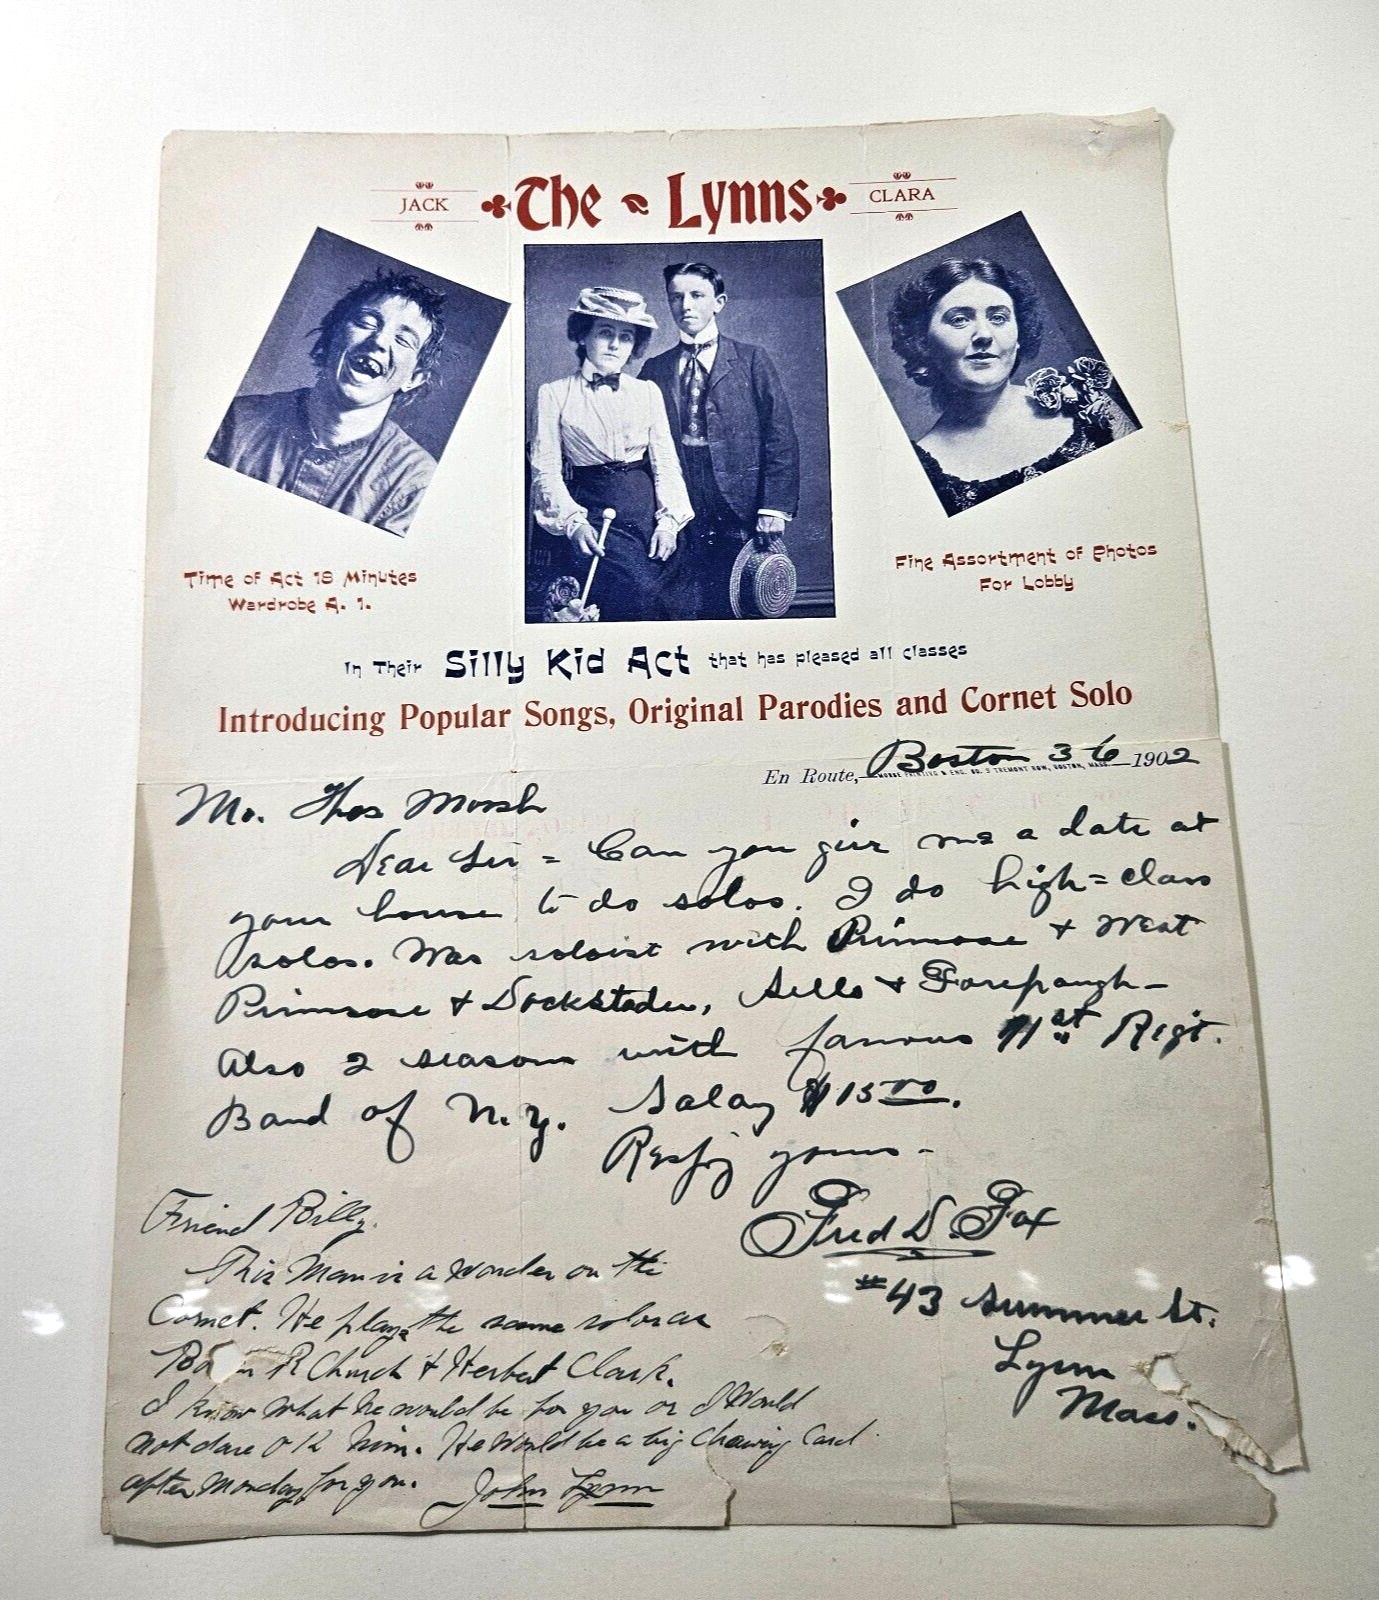 JACK The Lynns CLARA
Time of Act 18 Minutes
Wardrobe A. 1.
Fine Assortment of Photos
For Lobby
In Their Silly Kid Act that has pleased all classes
Introducing Popular Songs, Original Parodies and Cornet Solo
En Route, Boston 3-6 1902
MORSE PRINTING & ENG. CO. 9 TREMONT ROW, BOSTON, MASS.
Mr. Thos Marsh
Dear Sir = Can you give me a date at
your house to do solos. I do high=class
solos. Was soloist with Primrose + West
Primrose + Dockstader, Sells + Forepaugh-
Also 2 seasons with famous 71st Regt.
Band of N.Y. Salary $15 00.
Respy yours-
Fred D. Fox
#43 Summer St.
Lynn
Mass.
Friend Billy.
This Man is a Wonder on the
Cornet. He plays the same solos as
R Church + Herbert Clark.
I know what he would be for you or I Would
not dare O K him. He Would be a big Drawing Card
after Monday for you. John Lynn